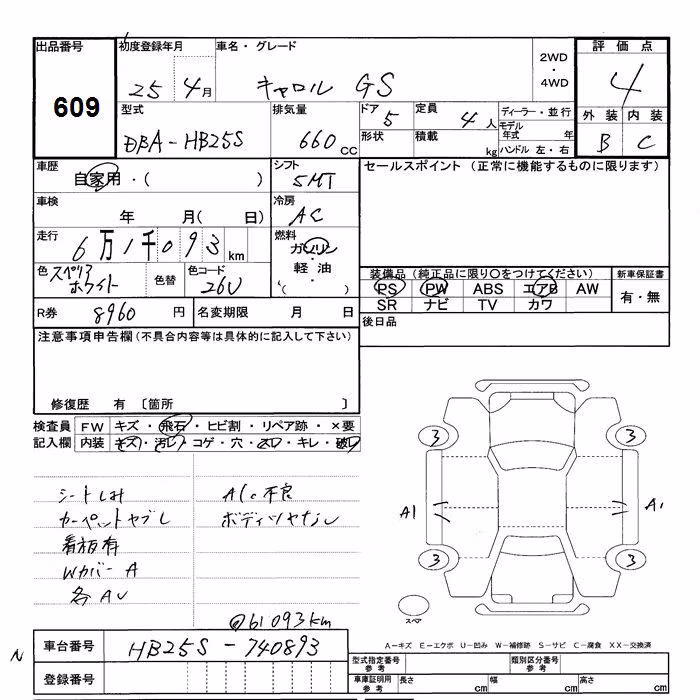 出品番号
609
初度登録年月
25 4月
車名・グレード
キャロル GS
2WD
・
4WD
評価点
4
外装 内装
B C
型式
DBA-HB25S
排気量
660 CC
ドア 5
形状
定員 4人
積載 kg
ディーラー・並行
モデル年式 年
ハンドル 左・右
車歴
自家用・( )
シフト
5MT
セールスポイント (正常に機能するものに限ります)
車検
年 月( 日)
冷房
AC
走行
6万1千093km
燃料
ガソリン
・
軽油
・
( )
色 スペリアホワイト
色替
色コード
26U
装備品 (純正品に限り○をつけてください)
PS PW ABS エアB AW
SR ナビ TV カワ
新車保証書
有・無
R券 8960円
名変期限 月 日
後日品
注意事項申告欄(不具合内容等は具体的に記入して下さい)
修復歴 有 〔箇所 〕
検査員記入欄
FW キズ・飛石・ヒビ割・リペア跡・×要
内装 キズ・汚レ・コゲ・穴・スレ・キレ・破レ
シートしみ
カーペットヤブレ
看板有
Wカバー A
各AU
A/C不良
ボディツヤなし
@61093km
3 3
A1 A1
3 3
スペア
A-キズ E-エクボ U-凹み W-補修跡 S-サビ C-腐食 XX-交換済
N
車台番号 HB25S-740893
登録番号
型式指定番号 参考
類別区分番号 参考
車庫証明用 参考
長さ cm 幅 cm 高さ cm